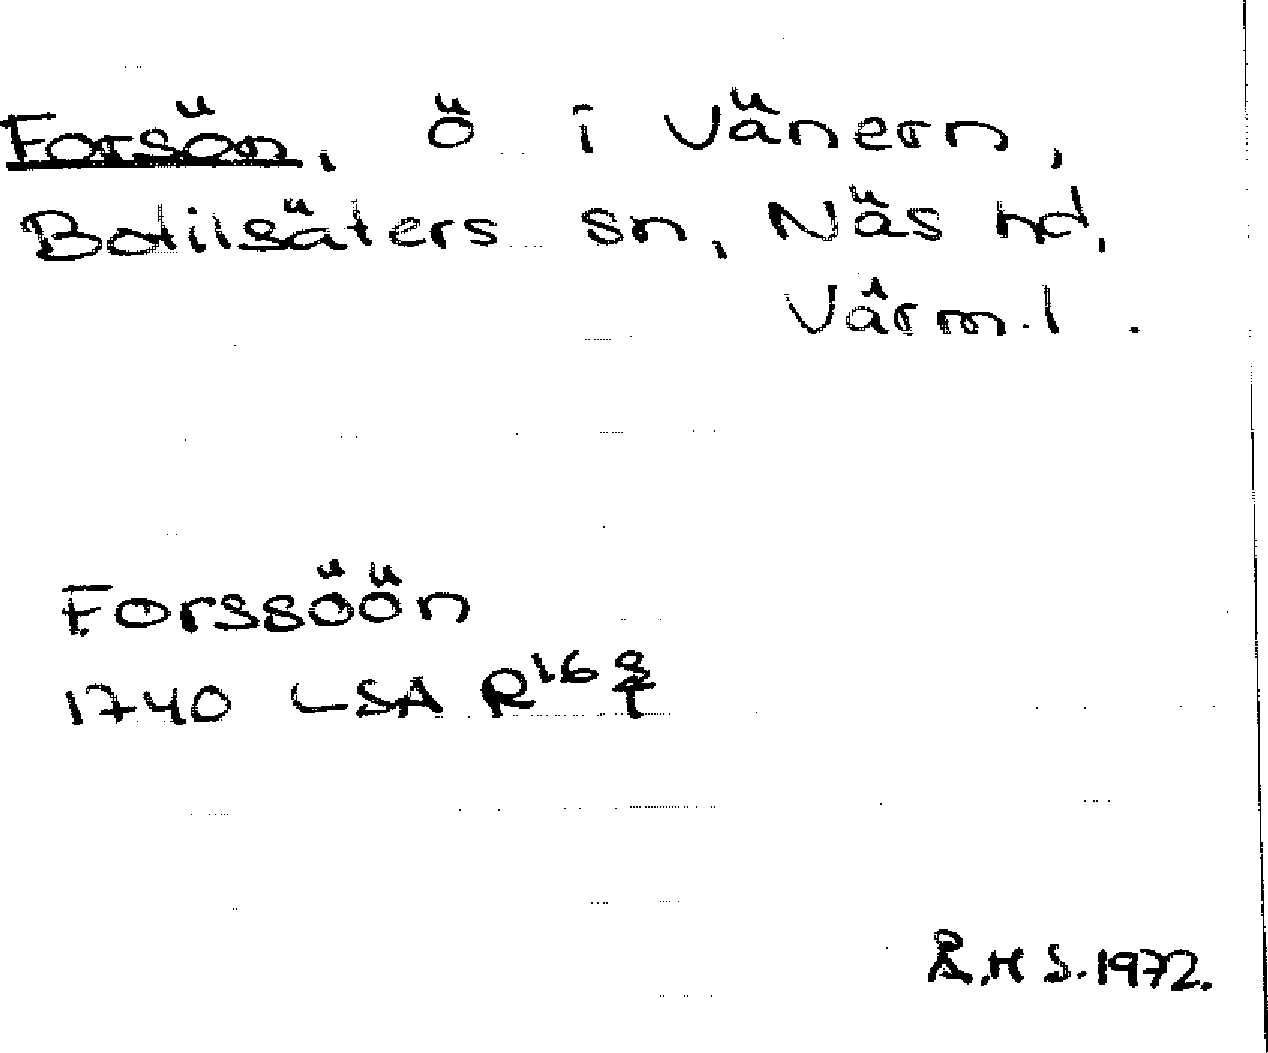 Forsön, ö i Vänern,
Botilsäters sn, Näs hd,
Värml.
Forssöön
1740 LSA R16 8/1
R.H.S. 1972.